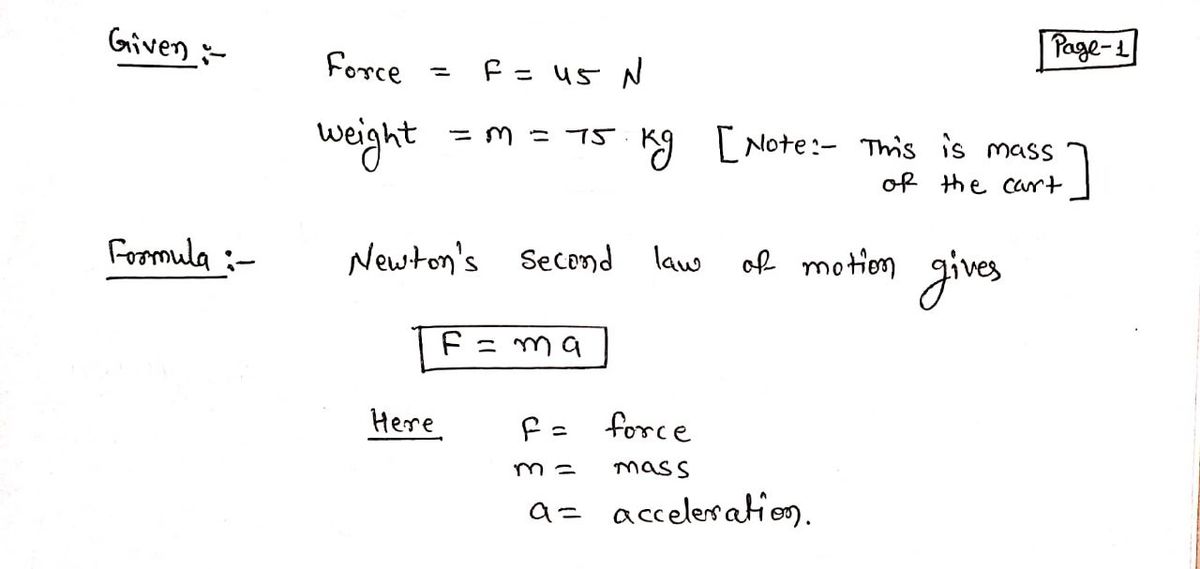 Given :-
Page-1
Force = F = 45 N
Weight = m = 75 kg [Note:- This is mass
of the cart]
Formula :- Newton's Second law of motion gives
F = ma
Here F = force
m = mass
a = acceleration.